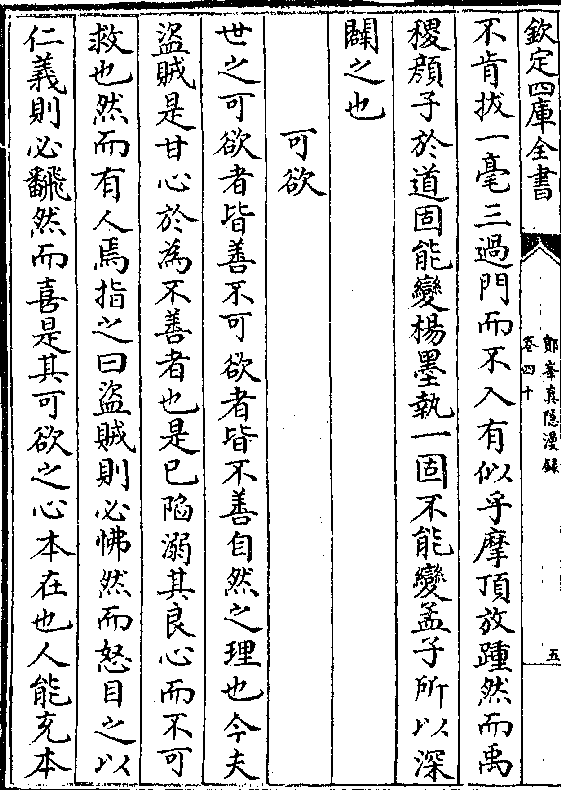 欽定四庫全書
鄮峯真隱漫錄
卷四十
五
不肯拔一毫三過門而不入有似乎摩頂放踵然而禹
稷顏子於道固能變楊墨執一固不能變孟子所以深
闢之也
可欲
世之可欲者皆善不可欲者皆不善自然之理也今夫
盜賊是甘心於為不善者也是已陷溺其良心而不可
救也然而有人焉指之曰盜賊則必怫然而怒目之以
仁義則必飜然而喜是其可欲之心本在也人能充本